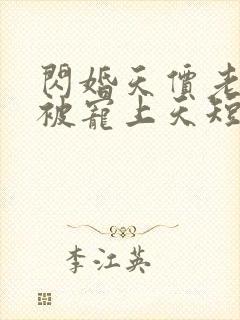 閃婚天價老
被寵上天短
李江英